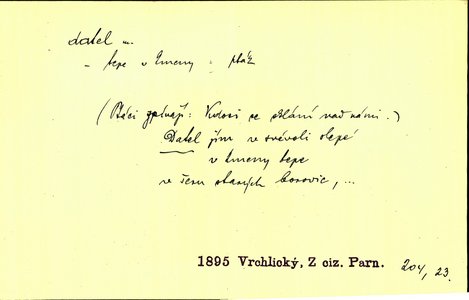 datel m.
- tepe v kmeny : pták
(Ptáci zpívají: Kdosi se sklání nad námi.)
Datel jim v svévoli slepé
v kmeny tepe
v šeru starých borovic, ...
1895 Vrchlický, Z ciz. Parn. 204, 23.